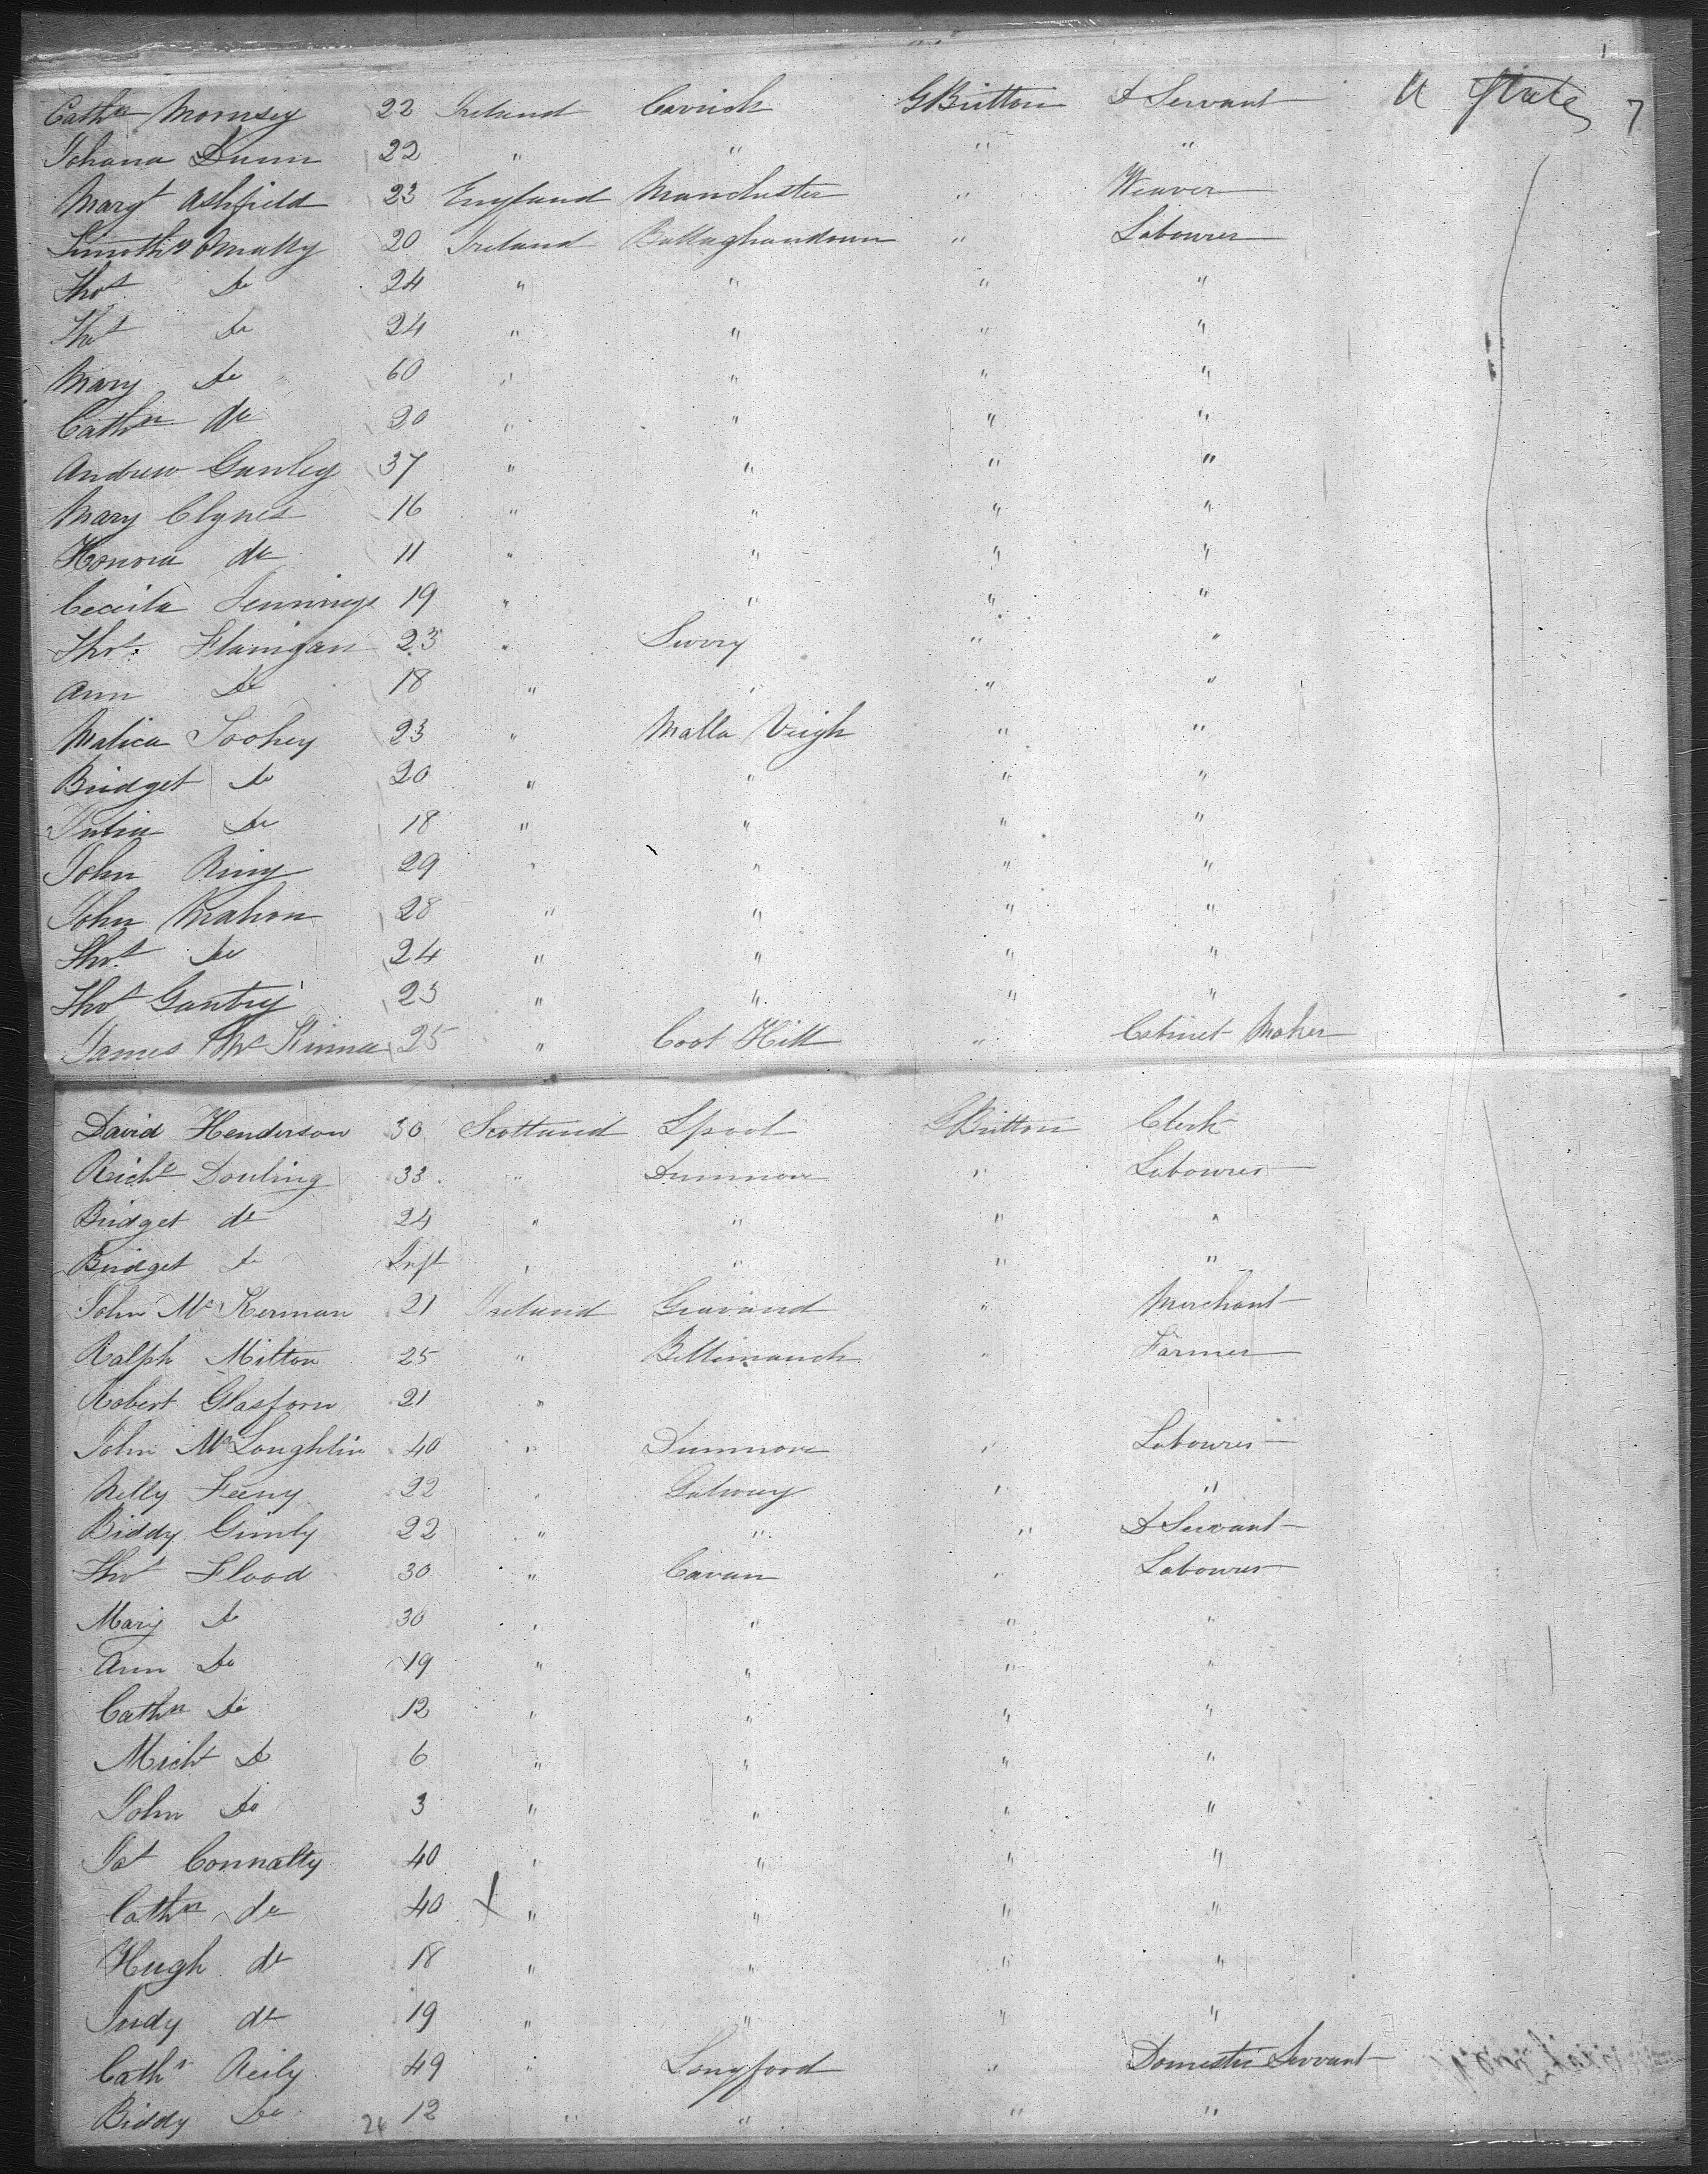 Cathn Mornsey 22 Ireland Carrick GBritton D Servant U States 7
Johana Dunn 22 " " " "
Margt Ashfield 23 England Manchester " Weaver
Timothy Omally 20 Ireland Ballaghandoun " Labourer
Thos Do 24 " " " "
Thos Do 24 " " " "
Mary Do 60 " " " "
Cathn do 20 " " " "
Andrew Ganley 37 " " " "
Mary Clynes 16 " " " "
Honora do 11 " " " "
Cecilia Jennings 19 " " " "
Thos Flanigan 23 " " "
Ann Do 18 " " " "
Toohey 23 " Malla Veigh " "
Bridget Do 20 " " " "
Julia Do 18 " " " "
John Ring 29 " " " "
John Mahon 28 " " " "
Thos Do 24 " " " "
Thos 23 " " " "
James McKinna 25 " Coot Hill " Cabinet Maker
David Henderson 30 Scotland Lpool GBritton Clerk
Richd Douling 33 " Dunmore " Labourer
Bridget do 24 " " " "
Bridget Do Inft " " " "
John McKerman 21 Ireland " Merchant
Ralph Milton 25 " " Farmer
Robert Glasforn 21 "
John McLoughlin 40 " Dunmore " Labourer
Nelly Feeny 22 " Galway " "
Biddy Gimly 22 " " " D Servant
Thos Flood 30 " Cavan " Labourer
Mary Do 30 " " " "
Ann Do 19 " " " "
Cathn Do 12 " " " "
Michl Do 6 " " " "
John Do 3 " " " "
Pat Connally 40 " " " "
Cathn do 40 X " " " "
Hugh do 18 " " " "
Judy do 19 " " " "
Cathn Reily 49 " Longford " Domestic Servant
Biddy Do 24 12 " " " "